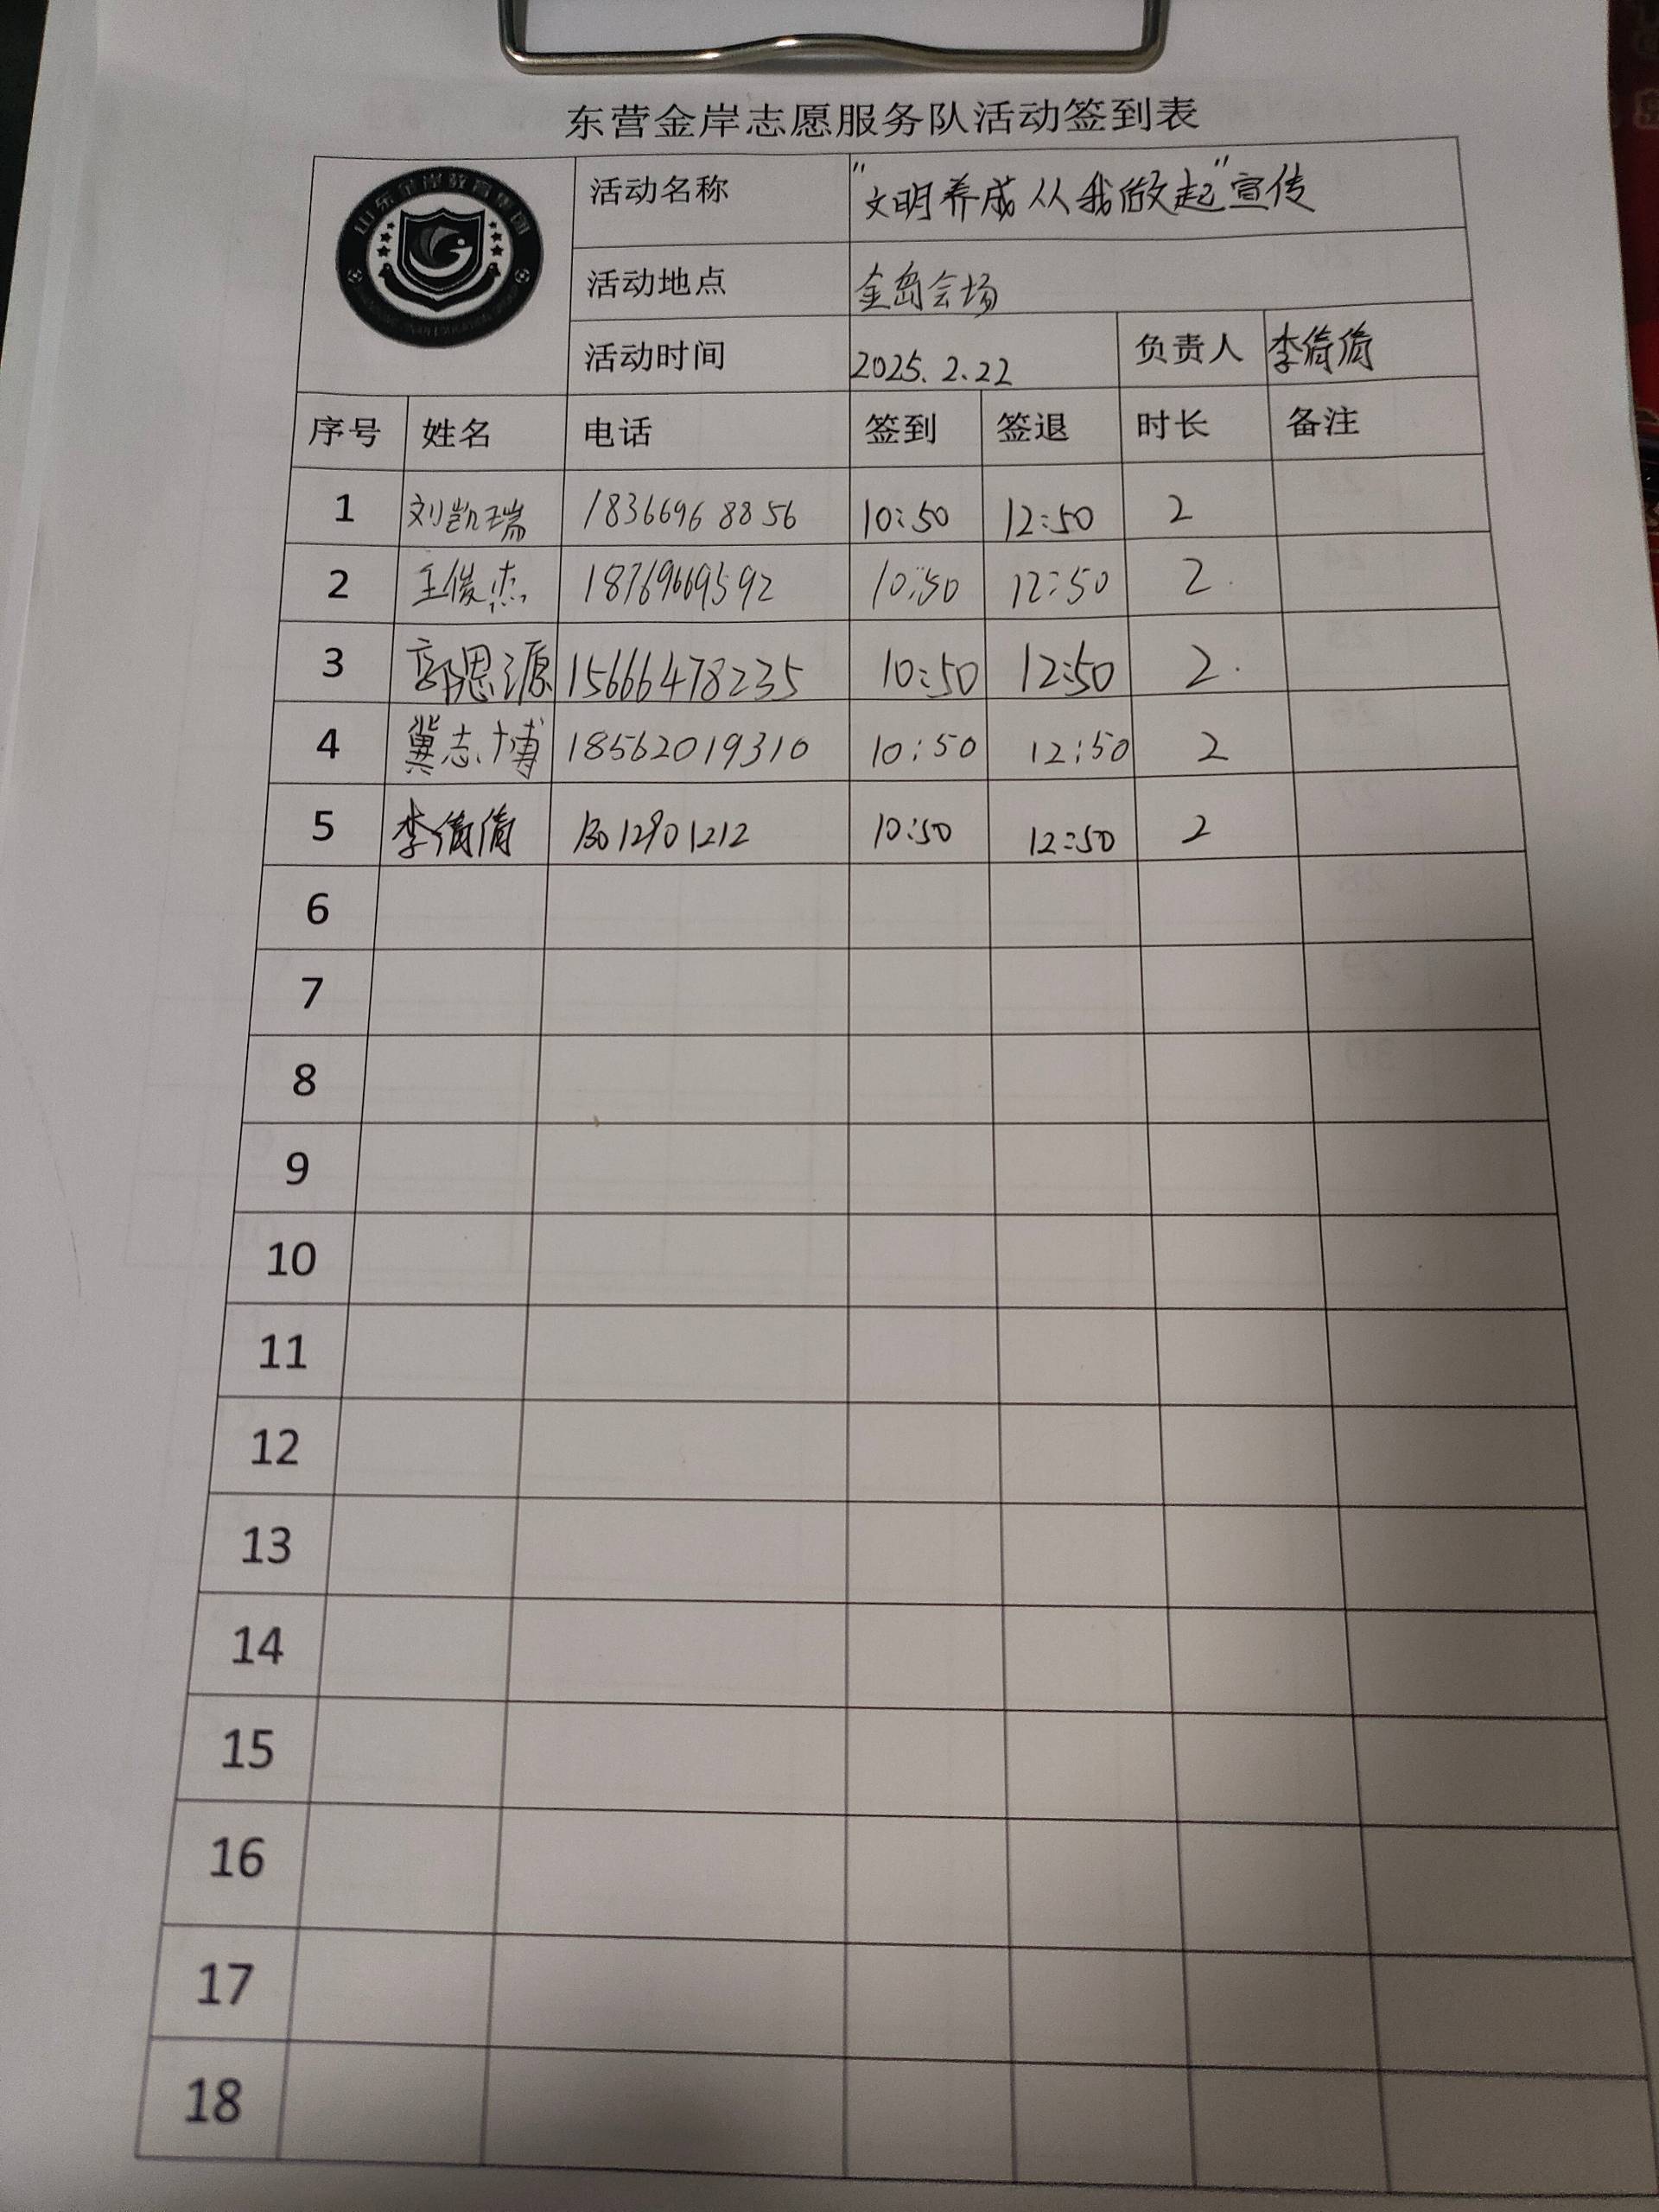 东营金岸志愿服务队活动签到表
山东金岸教育集团
活动名称 "文明养成从我做起"宣传
活动地点 金岛会场
活动时间 2025.2.22 负责人 李倩倩
序号 姓名 电话 签到 签退 时长 备注
1 刘凯瑞 18366968856 10:50 12:50 2
2 王俊杰 18769669592 10:50 12:50 2
3 郭恩源 15666478235 10:50 12:50 2
4 冀志博 18562019310 10:50 12:50 2
5 李倩倩 13012901212 10:50 12:50 2
6
7
8
9
10
11
12
13
14
15
16
17
18